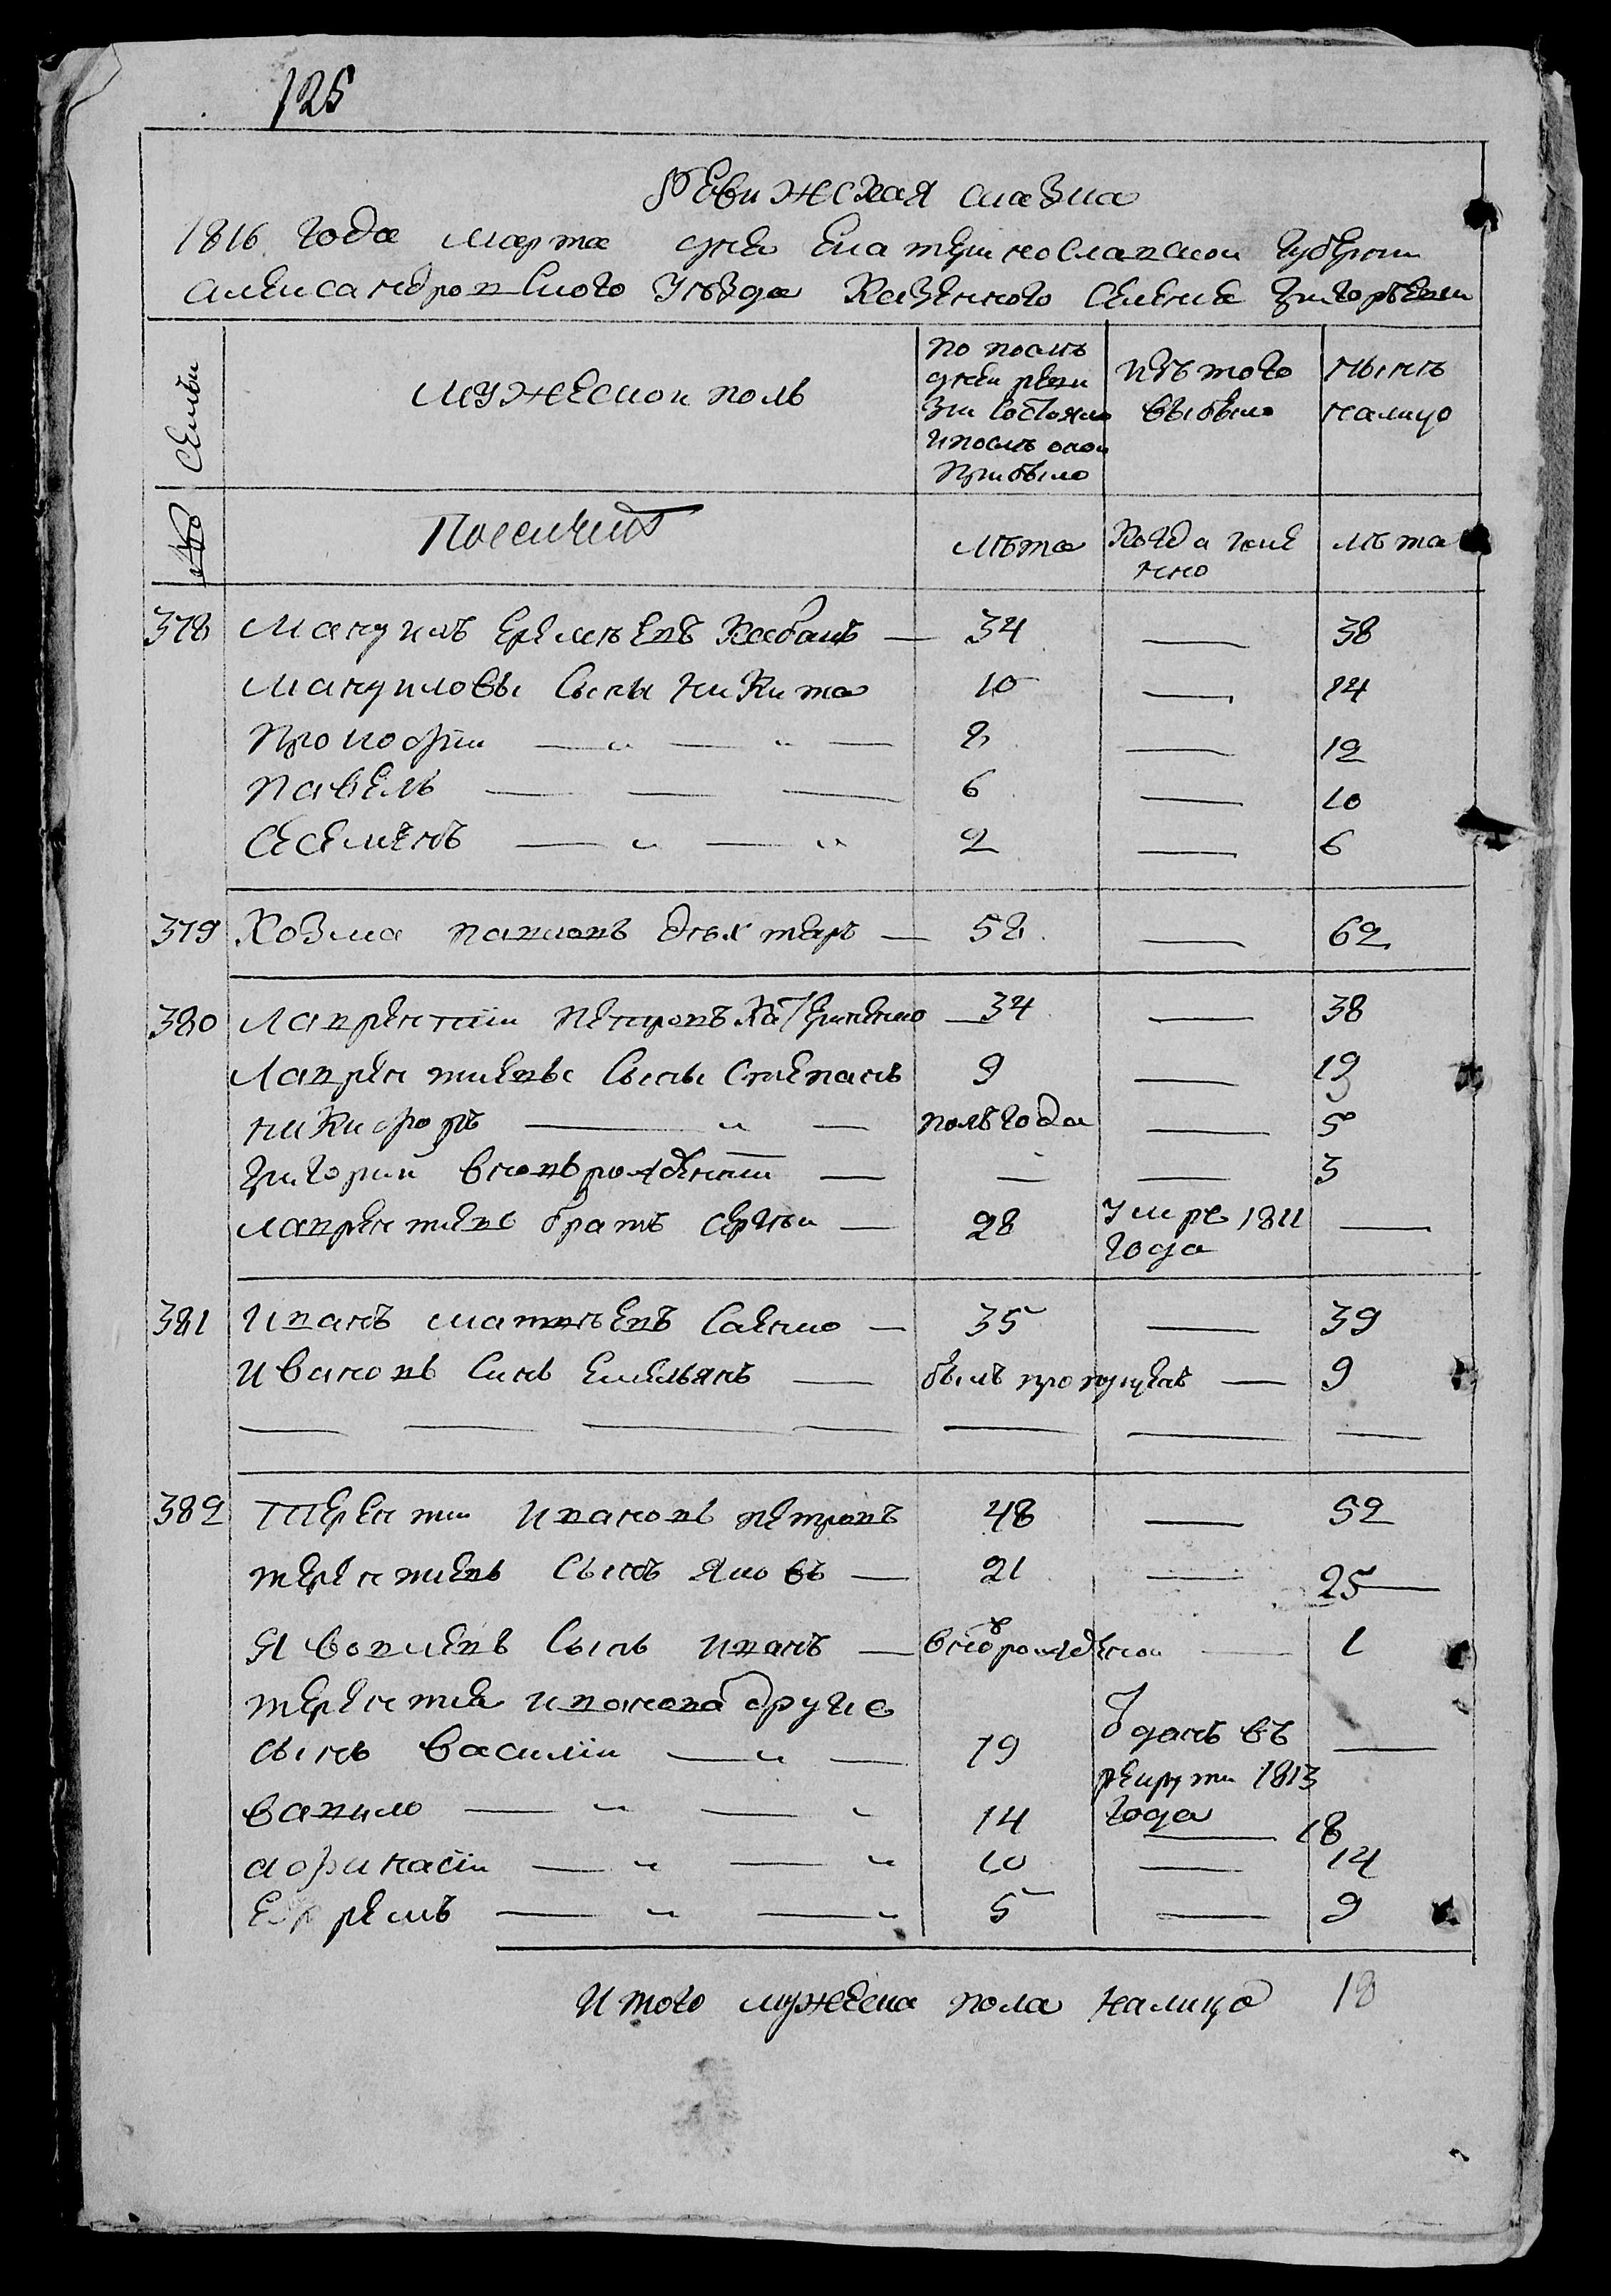 125
Ревижская сказка
1816 года марта дня Екатеринославской губернии
Александровского уезда Казенного селения
Семьи
мужескои полъ
По последнеи ревизии состояло и после онои прибыло
Изъ того выбыло
Нынѣ налицо
№
лѣта
Когда именно
лѣта
378 Мануилъ Еремѣевъ Кабанъ — 34 — 38
Мануиловы сыны Никита 10 — 14
Прокофии — „ — „ — 8 — 12
Павелъ — — — 6 — 10
Семенъ — „ — „ 2 — 6
379 Козма Павловъ Дѣхтеръ — 58 — 62
380 Лаврентіи Петровъ Катериненко — 34 — 38
Лаврентиевы сыны Степанъ 9 — 13
Никифоръ — „ — полъ года — 5
Григории вновь рожденни — — — 3
Лаврентиевъ братъ Сергѣи — 28 умре 1811 года —
381 Иванъ Матвѣевъ Саенко — 35 — 39
Ивановъ синъ Емельянъ — былъ пропущенъ — 9
— — — — — — —
382 Терентии Ивановъ Петровъ 48 — 52
Терентиевъ сынъ Яковъ — 21 — 25 —
Яковлевъ сынъ Иванъ — вновь рожденои — 1
Терентия Иванова другие
сынъ Василіи — „ — 19 Зданъ въ рекрути 1813 года —
Вавило — „ — „ 14 — 18
Афанасіи — „ — „ 10 — 14
Ефремъ — „ — „ 5 — 9
Итого мужеска пола налицо 18